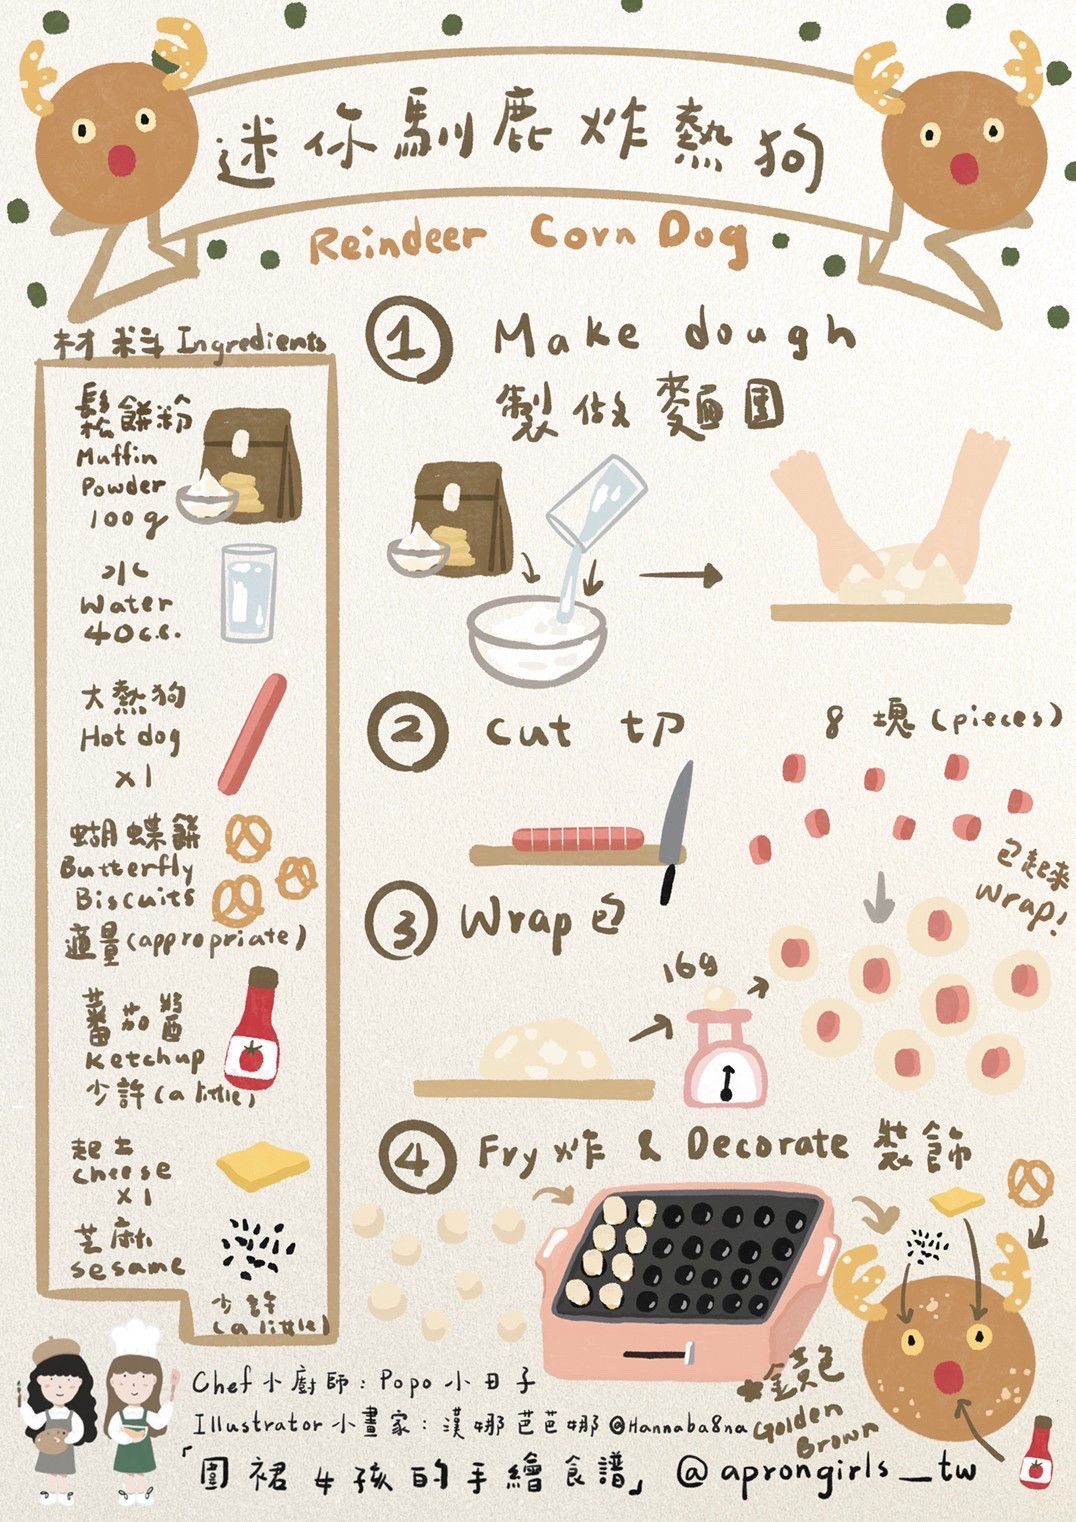 迷你馴鹿炸熱狗
Reindeer Corn Dog
材料 Ingredients
鬆餅粉
Muffin
Powder
100g
水
Water
40c.c.
大熱狗
Hot dog
x1
蝴蝶餅
Butterfly
Biscuits
適量(appropriate)
蕃茄醬
Ketchup
少許(a little)
起士
cheese
x1
芝麻
sesame
少許
(a little)
1 Make dough
製做麵團
2 Cut 切
8 塊(pieces)
包起來
Wrap!
3 Wrap 包
16g
4 Fry 炸 & Decorate 裝飾
*金黃色
Golden
Brown
Chef 小廚師:Popo 小日子
Illustrator 小畫家:漢娜芭芭娜 @Hannaba8na
「圍裙女孩的手繪食譜」 @aprongirls_tw